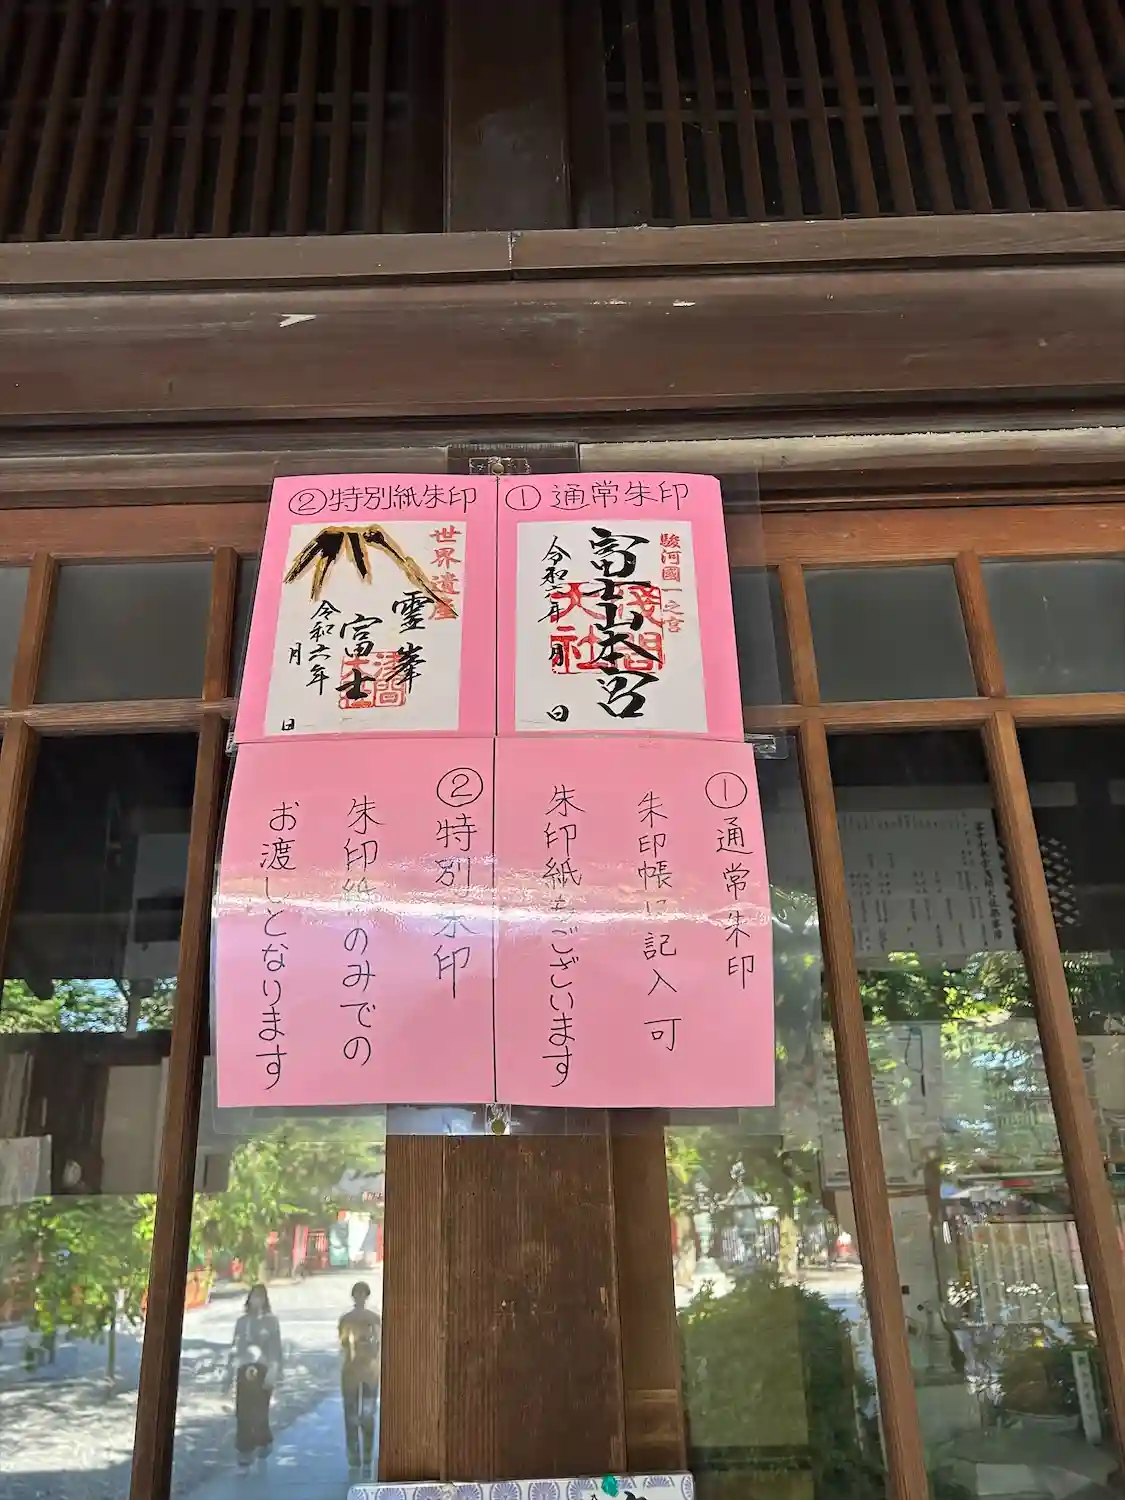 ①通常朱印
駿河國一之宮
富士山本宮
淺間大社
令和六年
月
日
②特別紙朱印
世界遺産
靈峯
富士
淺間大社
令和六年
月
日
①通常朱印
朱印帳に記入可
朱印紙もございます
②特別朱印
朱印紙のみでの
お渡しとなります